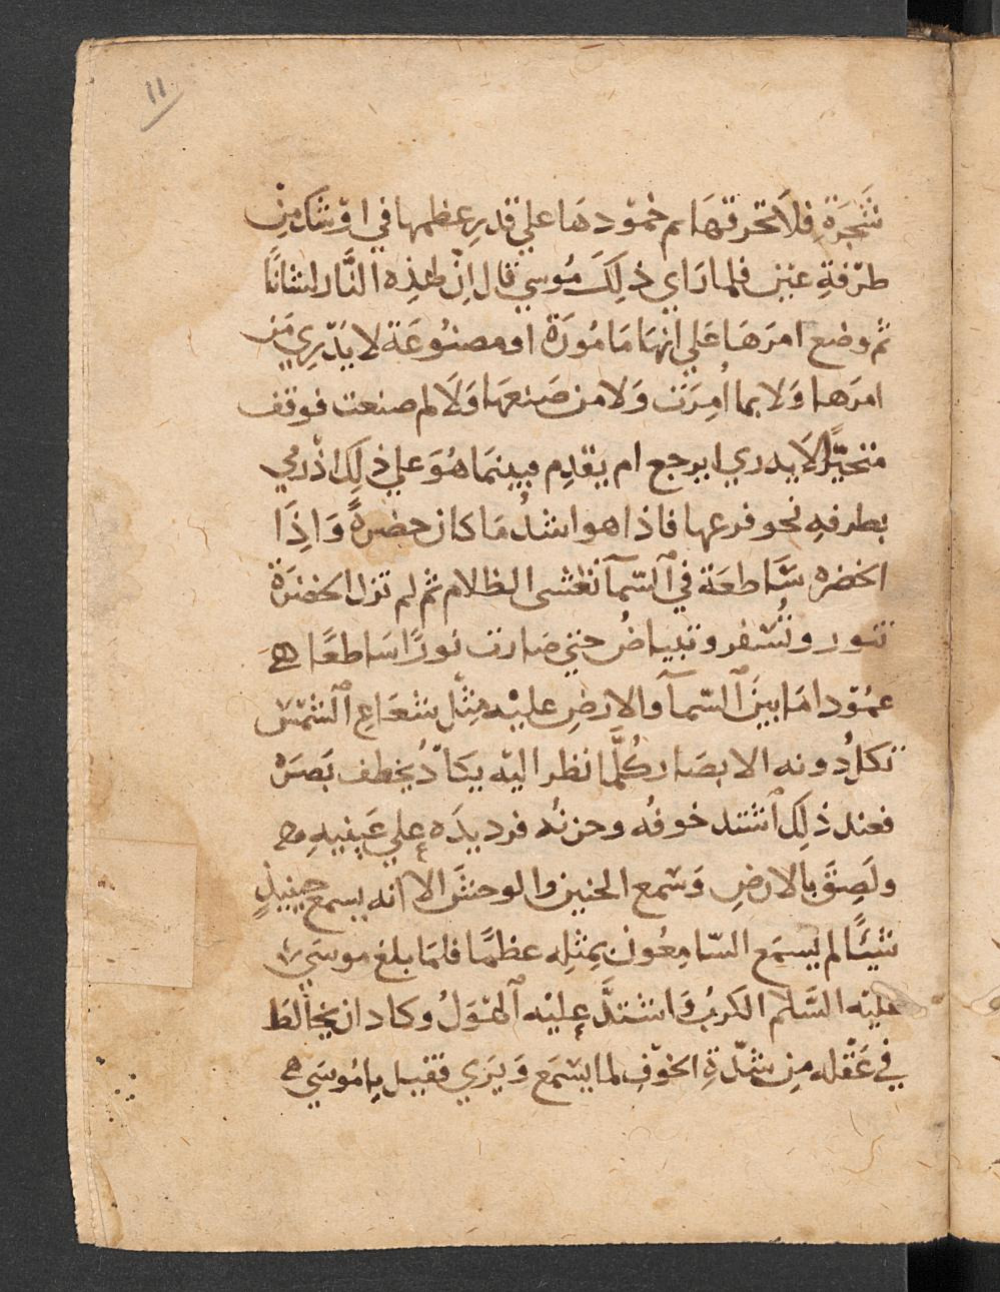 11
شَجَرَةٍ فلاَ تحرقهَا ثم خمُوْدهَا علي قدرِ عظمها في اوْشك مِنْ
طرْفةِ عين فلما رَاي ذلِكَ مُوسي قال اِنْ لهٰذِه النَّار لشانًا
ثم وضع امرَهَا عَلي انهَا مَامُورَة او مصنُوعَة لا يَدْرِي مَن
امرَها وَلا بما اُمِرَت وَلا من صَنعهَا وَلاَ لم صنعت فوقف
متحيّرًا لاَ يدري ايرجع ام يقدِم فبينمَا هُوَ علي ذلِك اذْ رمي
بطرفهِ نحو فرعها فاذا هو اشدُ مَا كان حضرةً وَاِذَا
الخضره سَّاطعَة في السّمآ تغشى الظلام ثم لم تزل الخضرَة
تنور وتُسفر وتبياضُ حتي صَارت نورًا سَاطعًا
عمُوْدا مَا بينَ السّمآ والارضِ عليْه مِثل شعَاعِ الشمْسْ
تكلُ دونه الابصَار كُلَّما نظر اليْه يكَادُ يخطف بَصَرَهْ
فعند ذلِك اشتد خوفُه وحزنُه فرد يدَه علي عَينيهِ
ولَصِقَ بالارضِ وَسَمع الحنين والوحش الا انه يسمع حينيذٍ
شيئًا لم يسمَع السّامِعُون بمثلِه عظمًا فلمَا بلغ موسَي
عليْه السَّلام الكربُ وَاشتدَّ عليْه الهَوْلُ وكاد ان يخالَط
في عَقْله مِن شدّةِ الخوْفِ لما يسْمَع وَيَرَي فقيل يامُوسَي